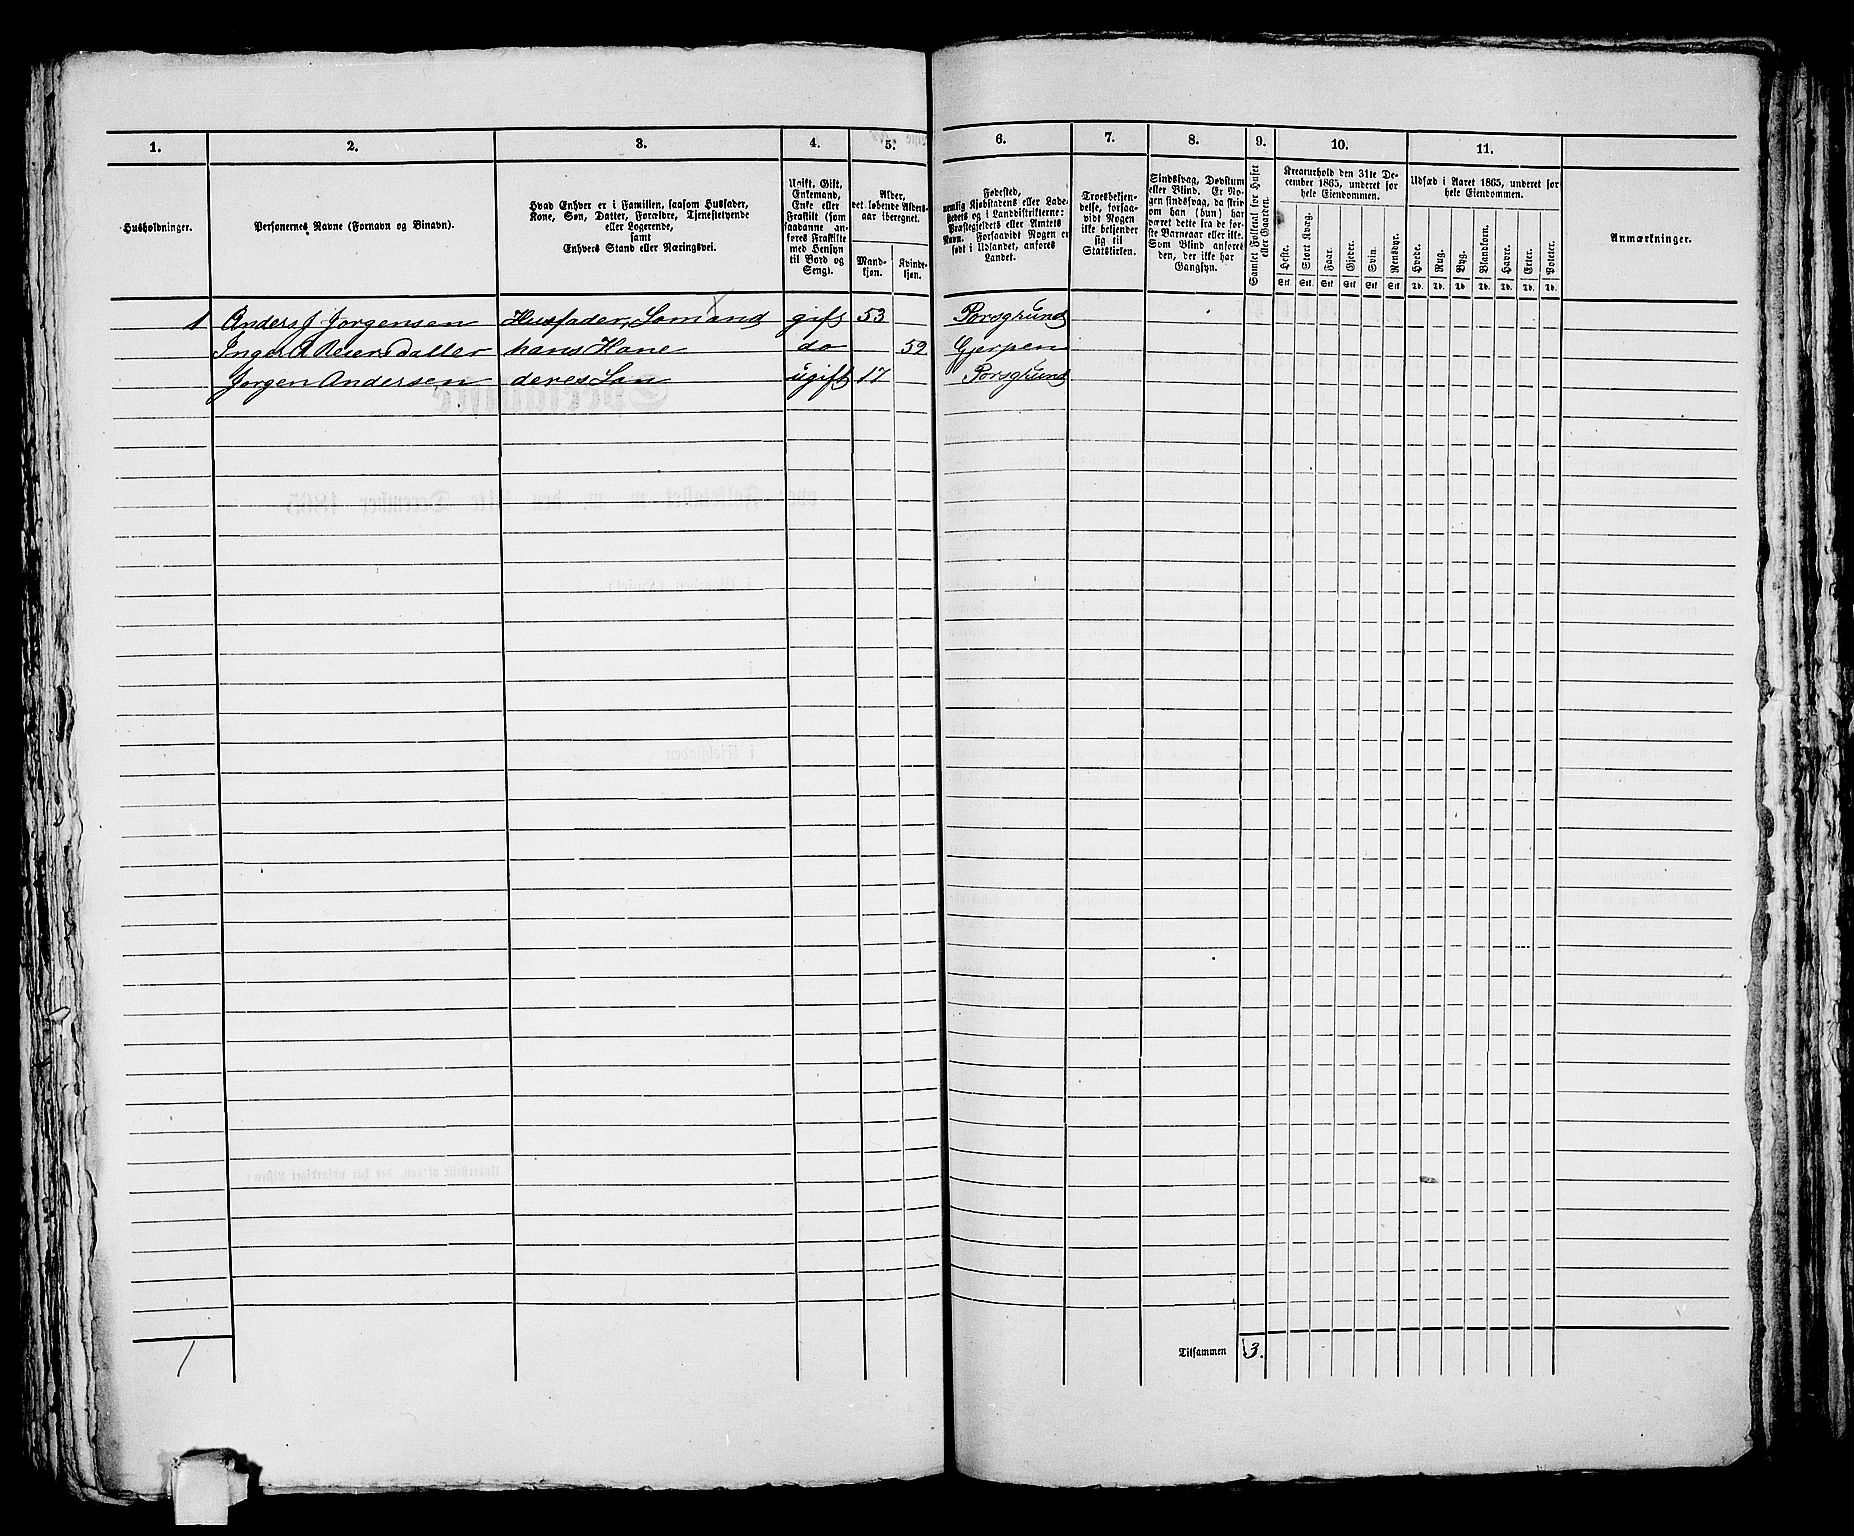 1. 2. 3. 4. 5. 6. 7. 8. 9. 10. 11.
Husholdninger.
Personernes Navne (Fornavn og Binavn).
Hvad Enhver er i Familien, saasom Husfader,
Kone, Søn, Datter, Forældre, Tjenestetyende
eller Logerende,
samt
Enhvers Stand eller Næringsvei.
Ugift, Gift,
Enkemand,
Enke eller
Fraskilt (som
saadanne an-
føres Fraskilte
med Hensyn
til Bord og
Seng).
Alder,
det løbende Alders-
aar iberegnet.
Mand-
kjøn.
Kvinde-
kjøn.
Fødested,
nemlig Kjøbstadens eller Lade-
stedets og i Landdistrikterne:
Præstegjeldets eller Amtets
Navn. Forsaavidt Nogen er
født i Udlandet, anføres
Landet.
Troesbekjen-
delse, forsaa-
vidt Nogen
ikke bekjender
sig til
Statskirken.
Sindssvag, Døvstum
eller Blind. Er No-
gen sindssvag, da skriv
om han (hun) har
været dette fra de før-
ste Barneaar eller ikke.
Som Blind anføres
den, der ikke har
Gangsyn.
Samlet Folketal for Huset
eller Gaarden.
Kreaturhold den 31te De-
cember 1865, underet for
hele Eiendommen.
Heste. Stort Kvæg. Faar. Gjeder. Svin. Rensdyr.
Stk. Stk. Stk. Stk. Stk. Stk.
Udsæd i Aaret 1865, underet for
hele Eiendommen.
Hvede. Rug. Byg. Blandkorn. Havre. Erter. Poteter.
Td. Td. Td. Td. Td. Td. Td.
Anmærkninger.
1 Anders J Jorgensen Husfader, Somand gift 53 Porsgrund
Inger A Reiersdatter hans Kone do 52 Gjerpen
Jorgen Andersen deres Son ugift 17 Porsgrund
1 Tilsammen 3.